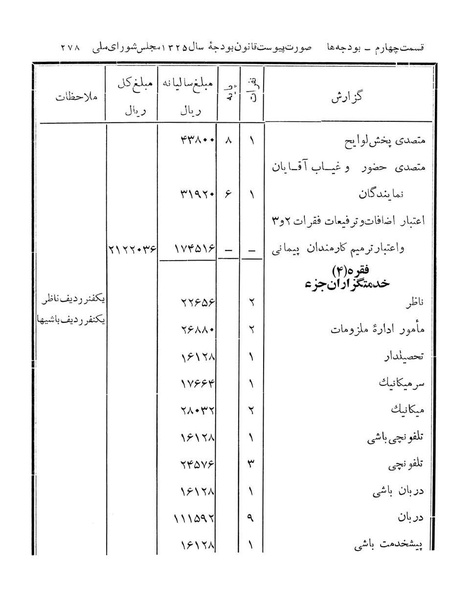 قسمت چهارم – بودجه‌ها صورت پیوست قانون بودجهٔ سال ۱۳۲۵ مجلس شورای ملی ۲۷۸
گزارش نفرات پایه مبلغ سالیانه ریال مبلغ کل ریال ملاحظات
متصدی پخش لوایح ۱ ۸ ۴۳۸۰۰
متصدی حضور و غیاب آقایان
نمایندگان ۱ ۶ ۳۱۹۲۰
اعتبار اضافات و ترفیعات فقرات ۲ و ۳
و اعتبار ترمیم کارمندان پیمانی – – ۱۷۴۵۱۶ ۲۱۲۲۰۳۶
فقره (۴)
خدمتگزاران جزء
ناظر ۲ ۲۲۶۵۶ یکنفر ردیف ناظر
مأمور ادارهٔ ملزومات ۲ ۲۶۸۸۰ یکنفر ردیف باشیها
تحصیلدار ۱ ۱۶۱۲۸
سر میکانیك ۱ ۱۷۶۶۴
میکانیك ۲ ۲۸۰۳۲
تلفونچی باشی ۱ ۱۶۱۲۸
تلفونچی ۳ ۲۴۵۷۶
دربان باشی ۱ ۱۶۱۲۸
دربان ۹ ۱۱۱۵۹۲
پیشخدمت باشی ۱ ۱۶۱۲۸